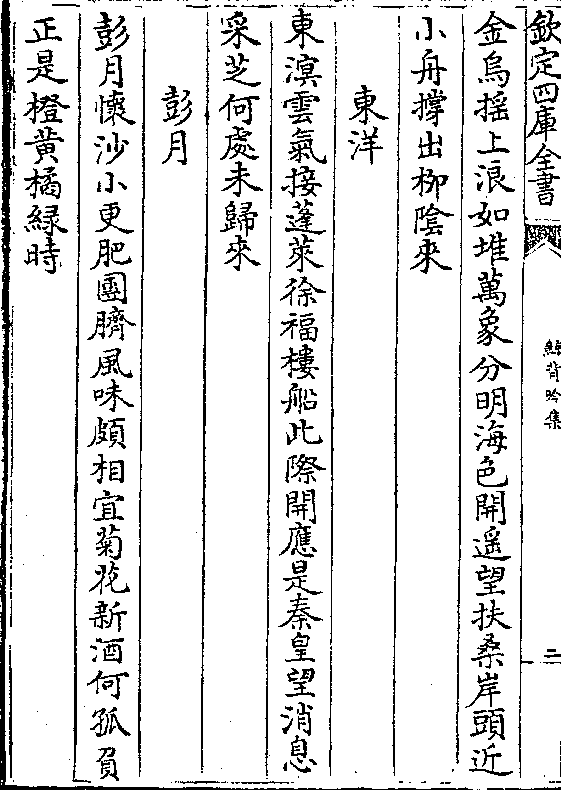 欽定四庫全書
鯨背吟集
二
金烏揺上浪如堆萬象分明海色開遥望扶桑岸頭近
小舟撐出柳陰來
東洋
東溟雲氣接蓬萊徐福樓船此際開應是秦皇望消息
采芝何處未歸來
彭月
彭月懐沙小更肥團臍風味頗相宜菊花新酒何孤負
正是橙黄橘緑時